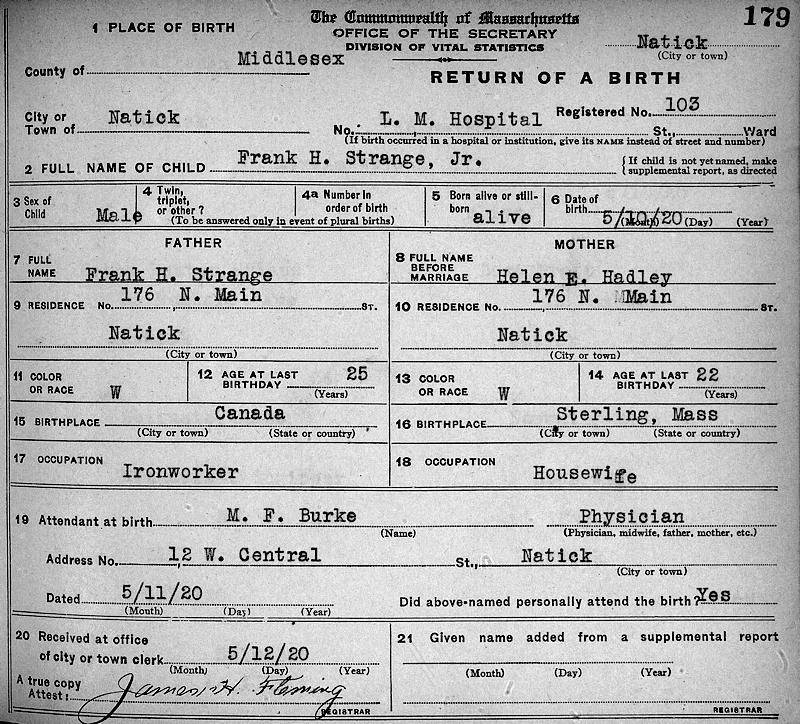 The Commonwealth of Massachusetts
179
1 PLACE OF BIRTH
OFFICE OF THE SECRETARY
DIVISION OF VITAL STATISTICS
Natick
(City or town)
County of Middlesex
RETURN OF A BIRTH
City or Town of Natick
No. L. M. Hospital St., Ward
Registered No. 103
(If birth occurred in a hospital or institution, give its NAME instead of street and number)
2 FULL NAME OF CHILD Frank H. Strange, Jr.
{If child is not yet named, make
supplemental report, as directed
3 Sex of Child Male
4 Twin, triplet, or other?
4a Number in order of birth
(To be answered only in event of plural births)
5 Born alive or still-born alive
6 Date of birth 5/10/20
(Month) (Day) (Year)
FATHER
MOTHER
7 FULL NAME Frank H. Strange
8 FULL NAME BEFORE MARRIAGE Helen E. Hadley
9 RESIDENCE No. 176 N. Main ST.
10 RESIDENCE No. 176 N. Main ST.
Natick
Natick
(City or town)
(City or town)
11 COLOR OR RACE W
12 AGE AT LAST BIRTHDAY 25
(Years)
13 COLOR OR RACE W
14 AGE AT LAST BIRTHDAY 22
(Years)
15 BIRTHPLACE Canada
(City or town) (State or country)
16 BIRTHPLACE Sterling, Mass
(City or town) (State or country)
17 OCCUPATION Ironworker
18 OCCUPATION Housewife
19 Attendant at birth M. F. Burke Physician
(Name) (Physician, midwife, father, mother, etc.)
Address No. 12 W. Central St., Natick
(City or town)
Dated 5/11/20
(Month) (Day) (Year)
Did above-named personally attend the birth? Yes
20 Received at office
of city or town clerk 5/12/20
(Month) (Day) (Year)
21 Given name added from a supplemental report
(Month) (Day) (Year)
A true copy
Attest: James H. Fleming
REGISTRAR
REGISTRAR